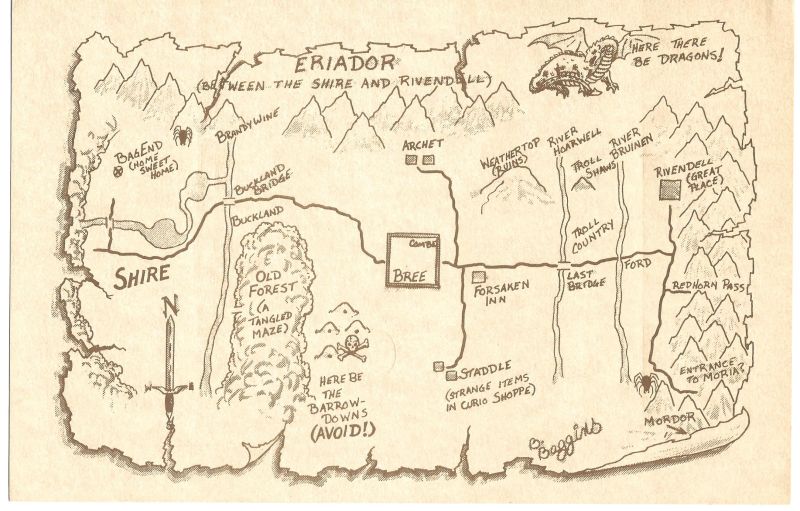 ERIADOR
(BETWEEN THE SHIRE AND RIVENDELL)
HERE THERE
BE DRAGONS!
BRANDYWINE
BAGEND
(HOME
SWEET
HOME)
BUCKLAND
BRIDGE
BUCKLAND
SHIRE
N
OLD
FOREST
(A
TANGLED
MAZE)
HERE BE
THE
BARROW-
DOWNS
(AVOID!)
ARCHET
COMBE
BREE
WEATHERTOP
(RUINS)
RIVER
HOARWELL
TROLL
SHAWS
RIVER
BRUINEN
RIVENDELL
(GREAT
PLACE)
TROLL
COUNTRY
FORSAKEN
INN
LAST
BRIDGE
FORD
REDHORN PASS
STADDLE
(STRANGE ITEMS
IN CURIO SHOPPE)
ENTRANCE
TO MORIA?
MORDOR
B. Baggins